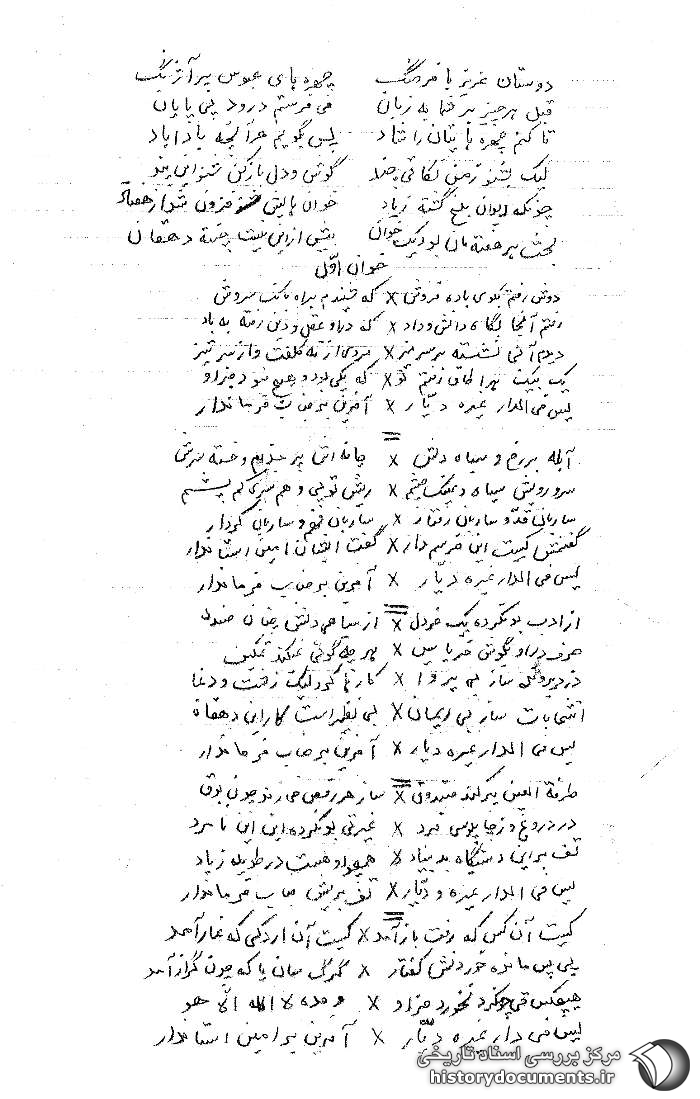 دوستان عزیز با فرهنگ چهره های عبوس پر آژنگ
قبل هر چیز بر شما به زبان می فرستم درود بی پایان
تا کنم چهره هایتان را شاد پس بگویم هر آنچه بادا باد
لیک بشنو زمن نکاتی چند گوش و دل باز کن شنو این پند
چونکه دیوان بلخ گشته زیاد خوان هایش فزون شد از هفتاد
بحث هر هفته مان بود یک خوان بیش از این نیست دهقان
خوان اول
دوش رفتم بکوی باده فروش x که شنیدم براه بانگ سروش
رفتم آنجا بگاه دانش و داد x که در او عقل و دین رفته به باد
دیدم آنجا نشسته بر سر میز x مردی از ته کلفت و از سر تیز
یک بیک بهر اطاق رفتم تو x که یکی بود و هیچ نبود جز او
لیس فی الدار غیره دیار x آفرین بر جناب فرماندار
آبله بر رخ و سیاه دلش x چانه اش پر
سر و رویش سیاه و عینک چشم x ریش توپی و هم سری کم پشم
ساربان قد و ساربان رفتار x ساربان فهم و ساربان کردار
گفتمش کیست این خر بی دار x گفت ایشان امین استاندار
لیس فی الدار غیره دیار x آفرین بر جناب فرماندار
از ادب بو نکرده یک خردل x از سیاهی دلش چنان
حرف در او بگوش خر یاسین x هر چه گوئی نمیکند تمکین
ساز بی پروا x کار او لیک زفت و دغا
انتخابات ساز بی ایمان x بی نظیر است کار این دهقان
لیس فی الدار غیره دیار x آفرین بر جناب فرماندار
طرفة العین پر کند صندوق x ساز هر رقص می زند چون بوق
در دروغ و ز چاپلوسی فرد x غیرتی بو نکرده این نامرد
تف بر این دستگاه بد بنیاد x همچو او هست در طویله زیاد
لیس فی الدار غیره و دیار x تف بریش جناب فرماندار
کیست آن کس که رفت باز آمد x کیست آن اردکی که غاز آمد
پی پس مانده خوردنش کفتار x گرگ سان یا که چون گراز آمد
هیچکس نخورد جز او x وحده لا اله الا هو
لیس فی دار غیره دیار x آفرین بر امین استاندار
مرکز بررسی اسناد تاریخی
historydocuments.ir